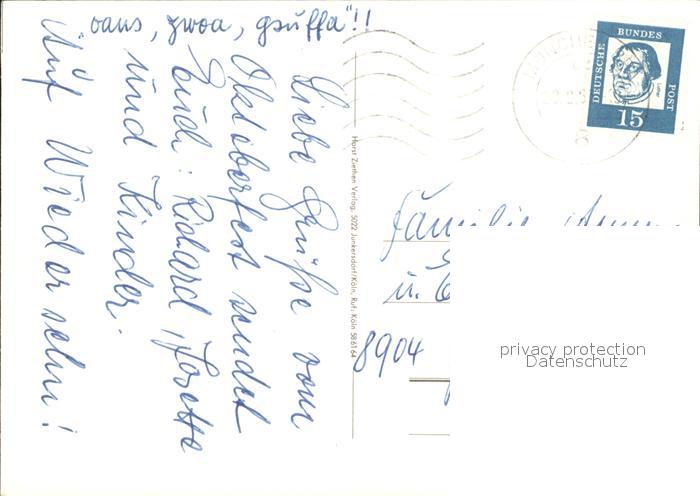 "oans, zwoa, gsuffa"!!
Liebe Grüße vom
Oktoberfest sendet
Euch: Richard, Josette
und Kinder.
Auf Wiedersehn!
Horst Ziethen Verlag, 5022 Junkersdorf/Köln, Ruf: Köln 586164
DEUTSCHE BUNDES POST
Luther
15
Familie
u.
8904
privacy protection
Datenschutz